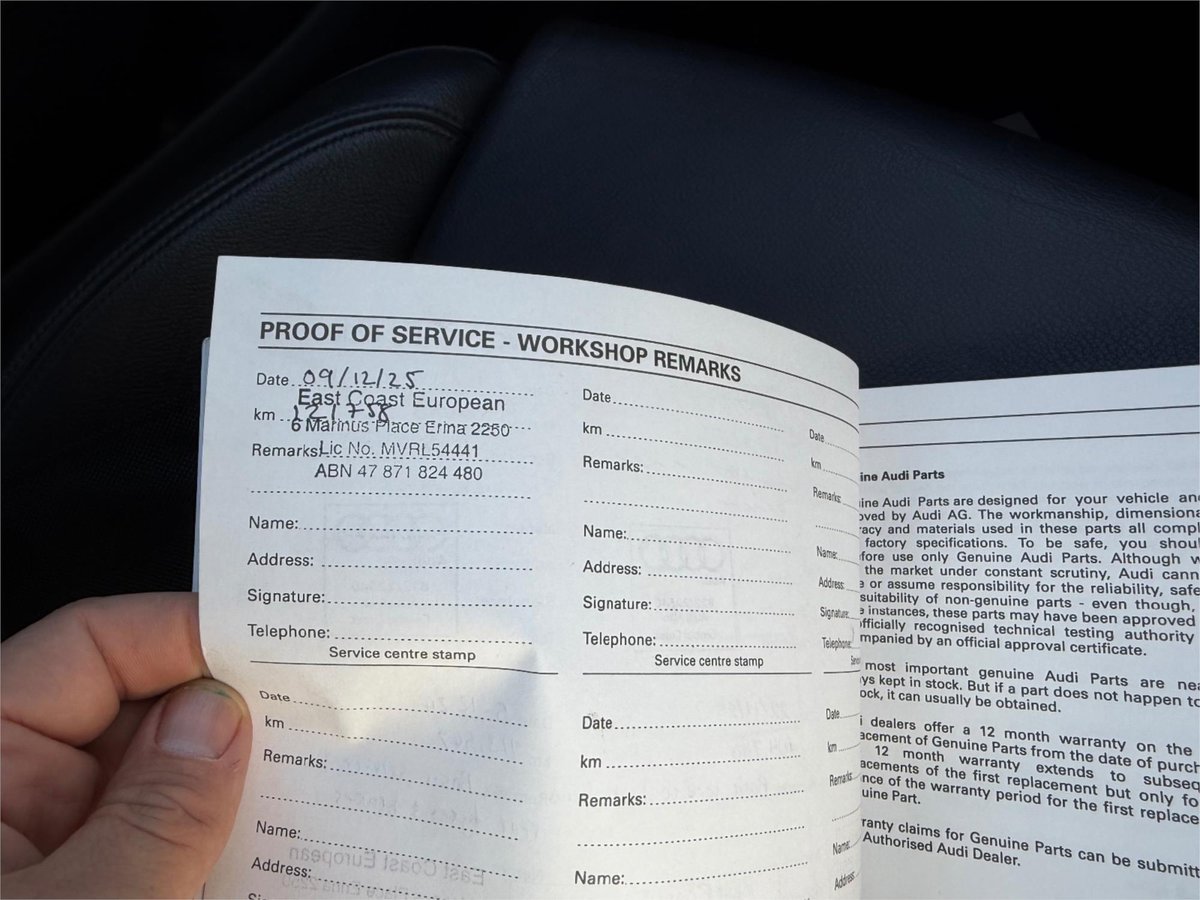 PROOF OF SERVICE - WORKSHOP REMARKS
Date 09/12/25
East Coast European
km 121758
6 Marinus Place Erina 2250
Remarks: Lic No. MVRL54441
ABN 47 871 824 480
Name:
Address:
Signature:
Telephone:
Service centre stamp
Date
km
Remarks:
Name:
Address:
Date
km
Remarks:
Name:
Address:
Signature:
Telephone:
Service centre stamp
Date
km
Remarks:
Name:
Date
km
Remarks:
Name:
Address:
Signature:
Telephone:
Date
km
Remarks:
Name:
Address:
ine Audi Parts
ine Audi Parts are designed for your vehicle and
oved by Audi AG. The workmanship, dimensiona
racy and materials used in these parts all compl
factory specifications. To be safe, you shou
fore use only Genuine Audi Parts. Although w
the market under constant scrutiny, Audi cann
e or assume responsibility for the reliability, safe
suitability of non-genuine parts - even though,
e instances, these parts may have been approved
officially recognised technical testing authority
mpanied by an official approval certificate.
most important genuine Audi Parts are nea
ys kept in stock. But if a part does not happen to
ock, it can usually be obtained.
i dealers offer a 12 month warranty on the
acement of Genuine Parts from the date of purch
12 month warranty extends to subseq
acements of the first replacement but only fo
nce of the warranty period for the first replace
uine Part.
ranty claims for Genuine Parts can be submitt
Authorised Audi Dealer.